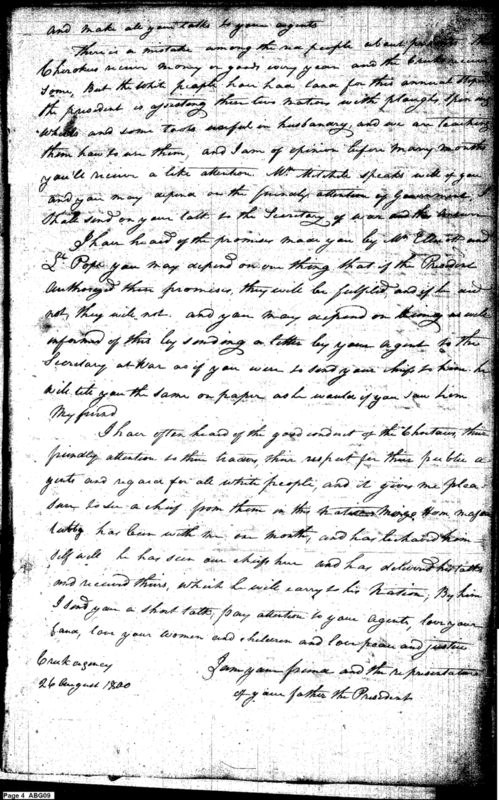 and make all your talks to your agents
There is a mistake among the red people about presents the
Cherokees receive money or goods every year and the Creeks receive
some, But the White people have had land for this annual stipend
the president is assisting these two nations with ploughs, spinning
Wheels and some tools useful in husbandry, and we are teaching
them how to use them, and I am of opinion before many months
you'll receive a like attention Mr. Mitchell speaks well of you
and you may depend on the friendly attention of Government, I
Shall send on your talk to the Secretary of war
I have heard of the promises made you by Mr. Ellicott and
Lt. Pope you may depend on one thing that if the President
Authorized these promises, they will be fulfiled, and if he did
not, they will not. and you may depend on being as well
informed of this by sending a letter by your agent to the
Secretary at War as if you were to send your chiefs to him. he
will tell you the same on paper as he would if you saw him
My friend
I have often heard of the good conduct of the Choctaws, their
friendly attention to their traders, their respect for their public a
gents and regard for all white people, and it gives me plea
sure to see a chief from them in this Mingo Hom. masa
tubby has been with me one month, and has behaved him
self well he has seen our chiefs here and has delivered his talks
and received theirs, which he will carry to his Nation, By him
I send you a short talk, pay attention to your agents, love your
land, love your women and children and love peace and justice
Creek agency
26 August 1800
I am your friend and the representative
of your father the President
Page 4 ABG09